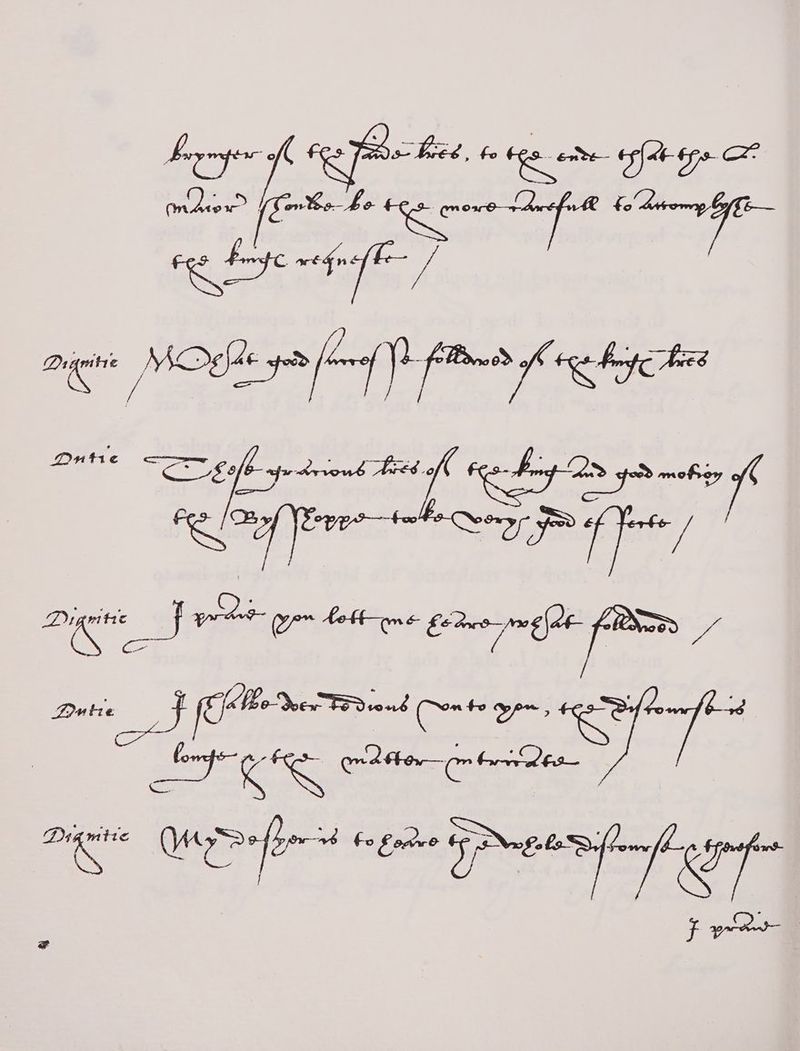 brynger of the saide lres, to the ende that the L.
maior shoulde be the more carefull to accomplysshe
the kinge requeste /
Dignitie What good succes followed of the kinge lres
Dutie Those gracious lres of the king and good motion of
the Bysshoppe tooke very good efferte /
Dignitie I praie you lett me heare what followed /
Dutie I shalbe over tedious vnto you, the discourse is
longe & the matter intricate /
Dignitie My desyer is to heare the whole discourse & therefore
I praie